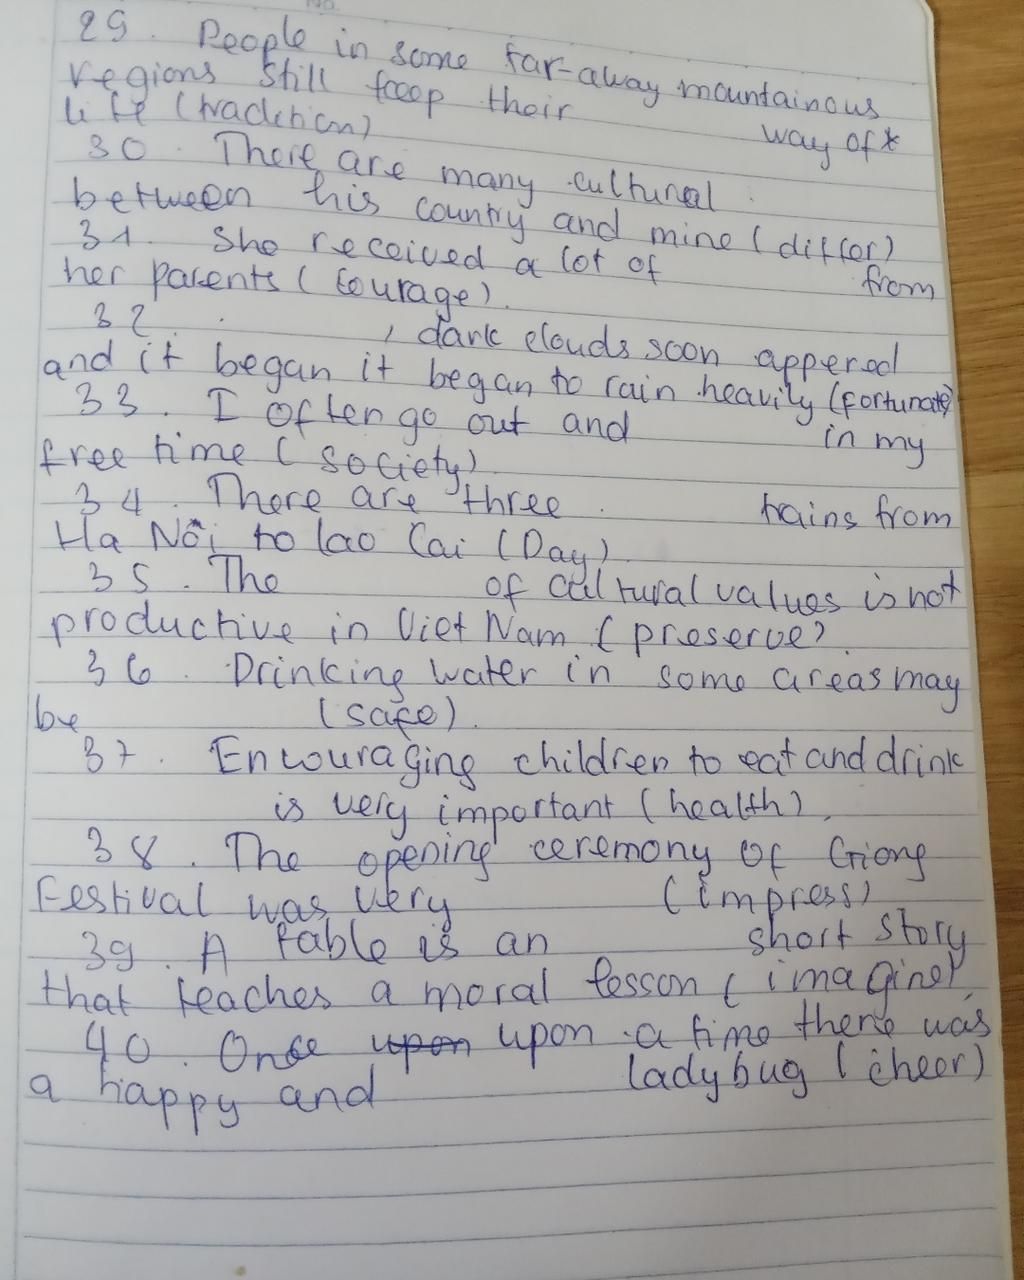 No.
29. People in some far-away mountainous
regions still keep their way of *
life (tradition)
30. There are many cultural
between his country and mine (differ)
31. She received a lot of from
her parents (courage).
32. , dark clouds soon appered
and it began it began to rain heavily (fortunate)
33. I often go out and in my
free time (society)
34. There are three trains from
Ha Nôi to lao Cai (Day)
35. The of cultural values is not
productive in Viet Nam (preserve).
36. Drinking water in some areas may
be (safe).
37. Encouraging children to eat and drink
is very important (health).
38. The opening ceremony of Giong
Festival was very (impress)
39. A fable is an short story
that teaches a moral lesson (imagine)
40. Once upon upon a time there was
a happy and ladybug (cheer)